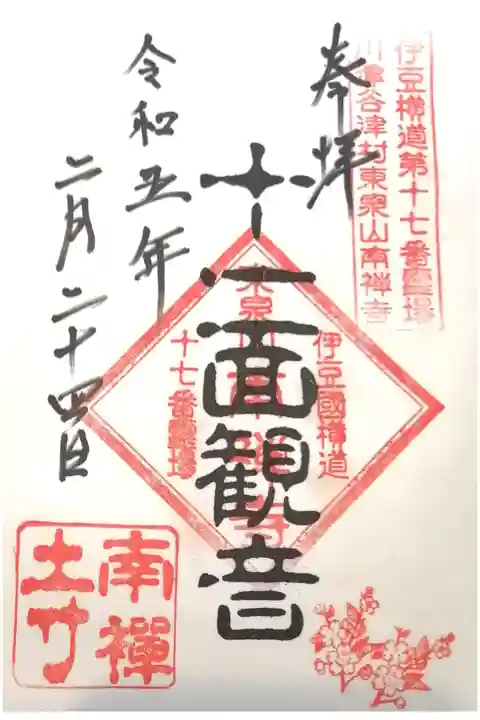 伊豆横道第十七番霊場
川津谷津村東泉山南禅寺
奉拝
十一面観音
東泉山南禅寺
伊豆國横道
十七番霊場
令和五年
二月二十四日
南禅
土竹